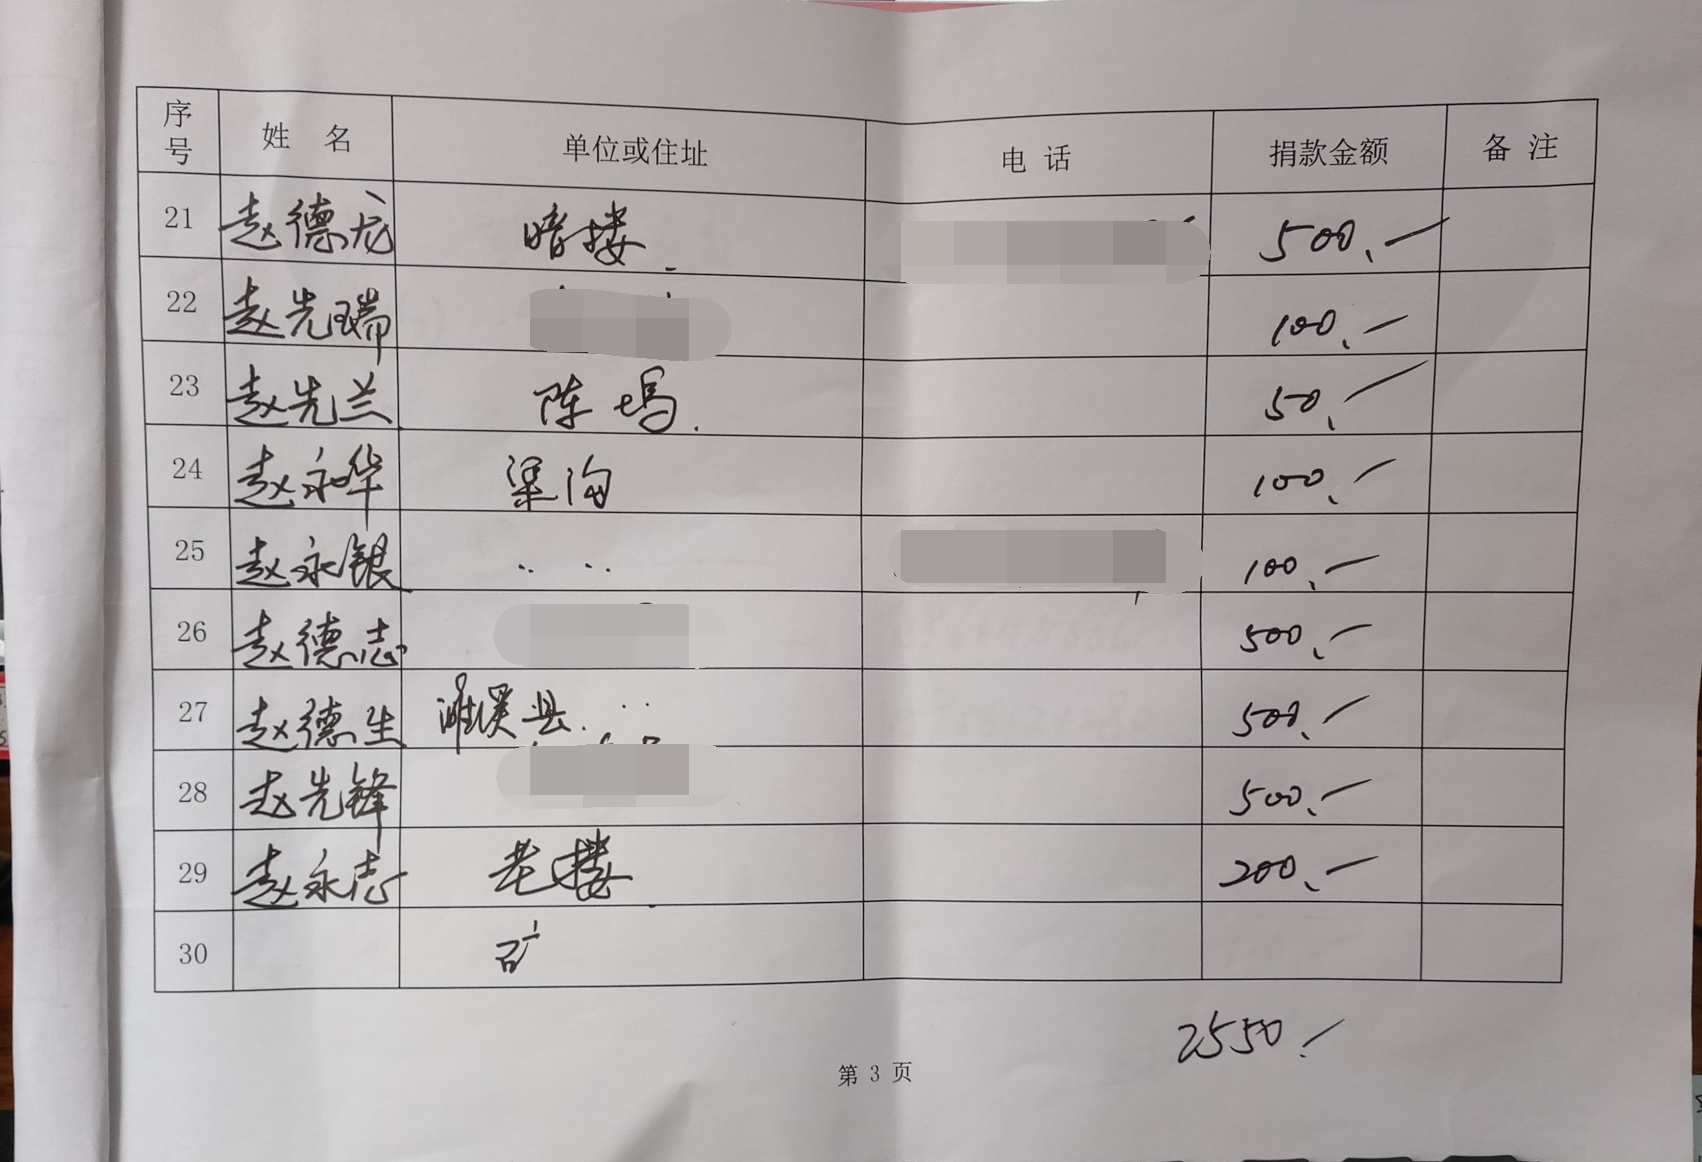 序号 姓名 单位或住址 电话 捐款金额 备注
21 赵德龙 暗搂. 500.—
22 赵先瑞 100.—
23 赵先兰 陈塢. 50.—
24 赵永华 渠沟 100.—
25 赵永银 .. .. 100.—
26 赵德志 500.—
27 赵德生 濉溪县. .. 500.—
28 赵先锋 500.—
29 赵永志 老搂 200.—
30 矿
2550.
第 3 页